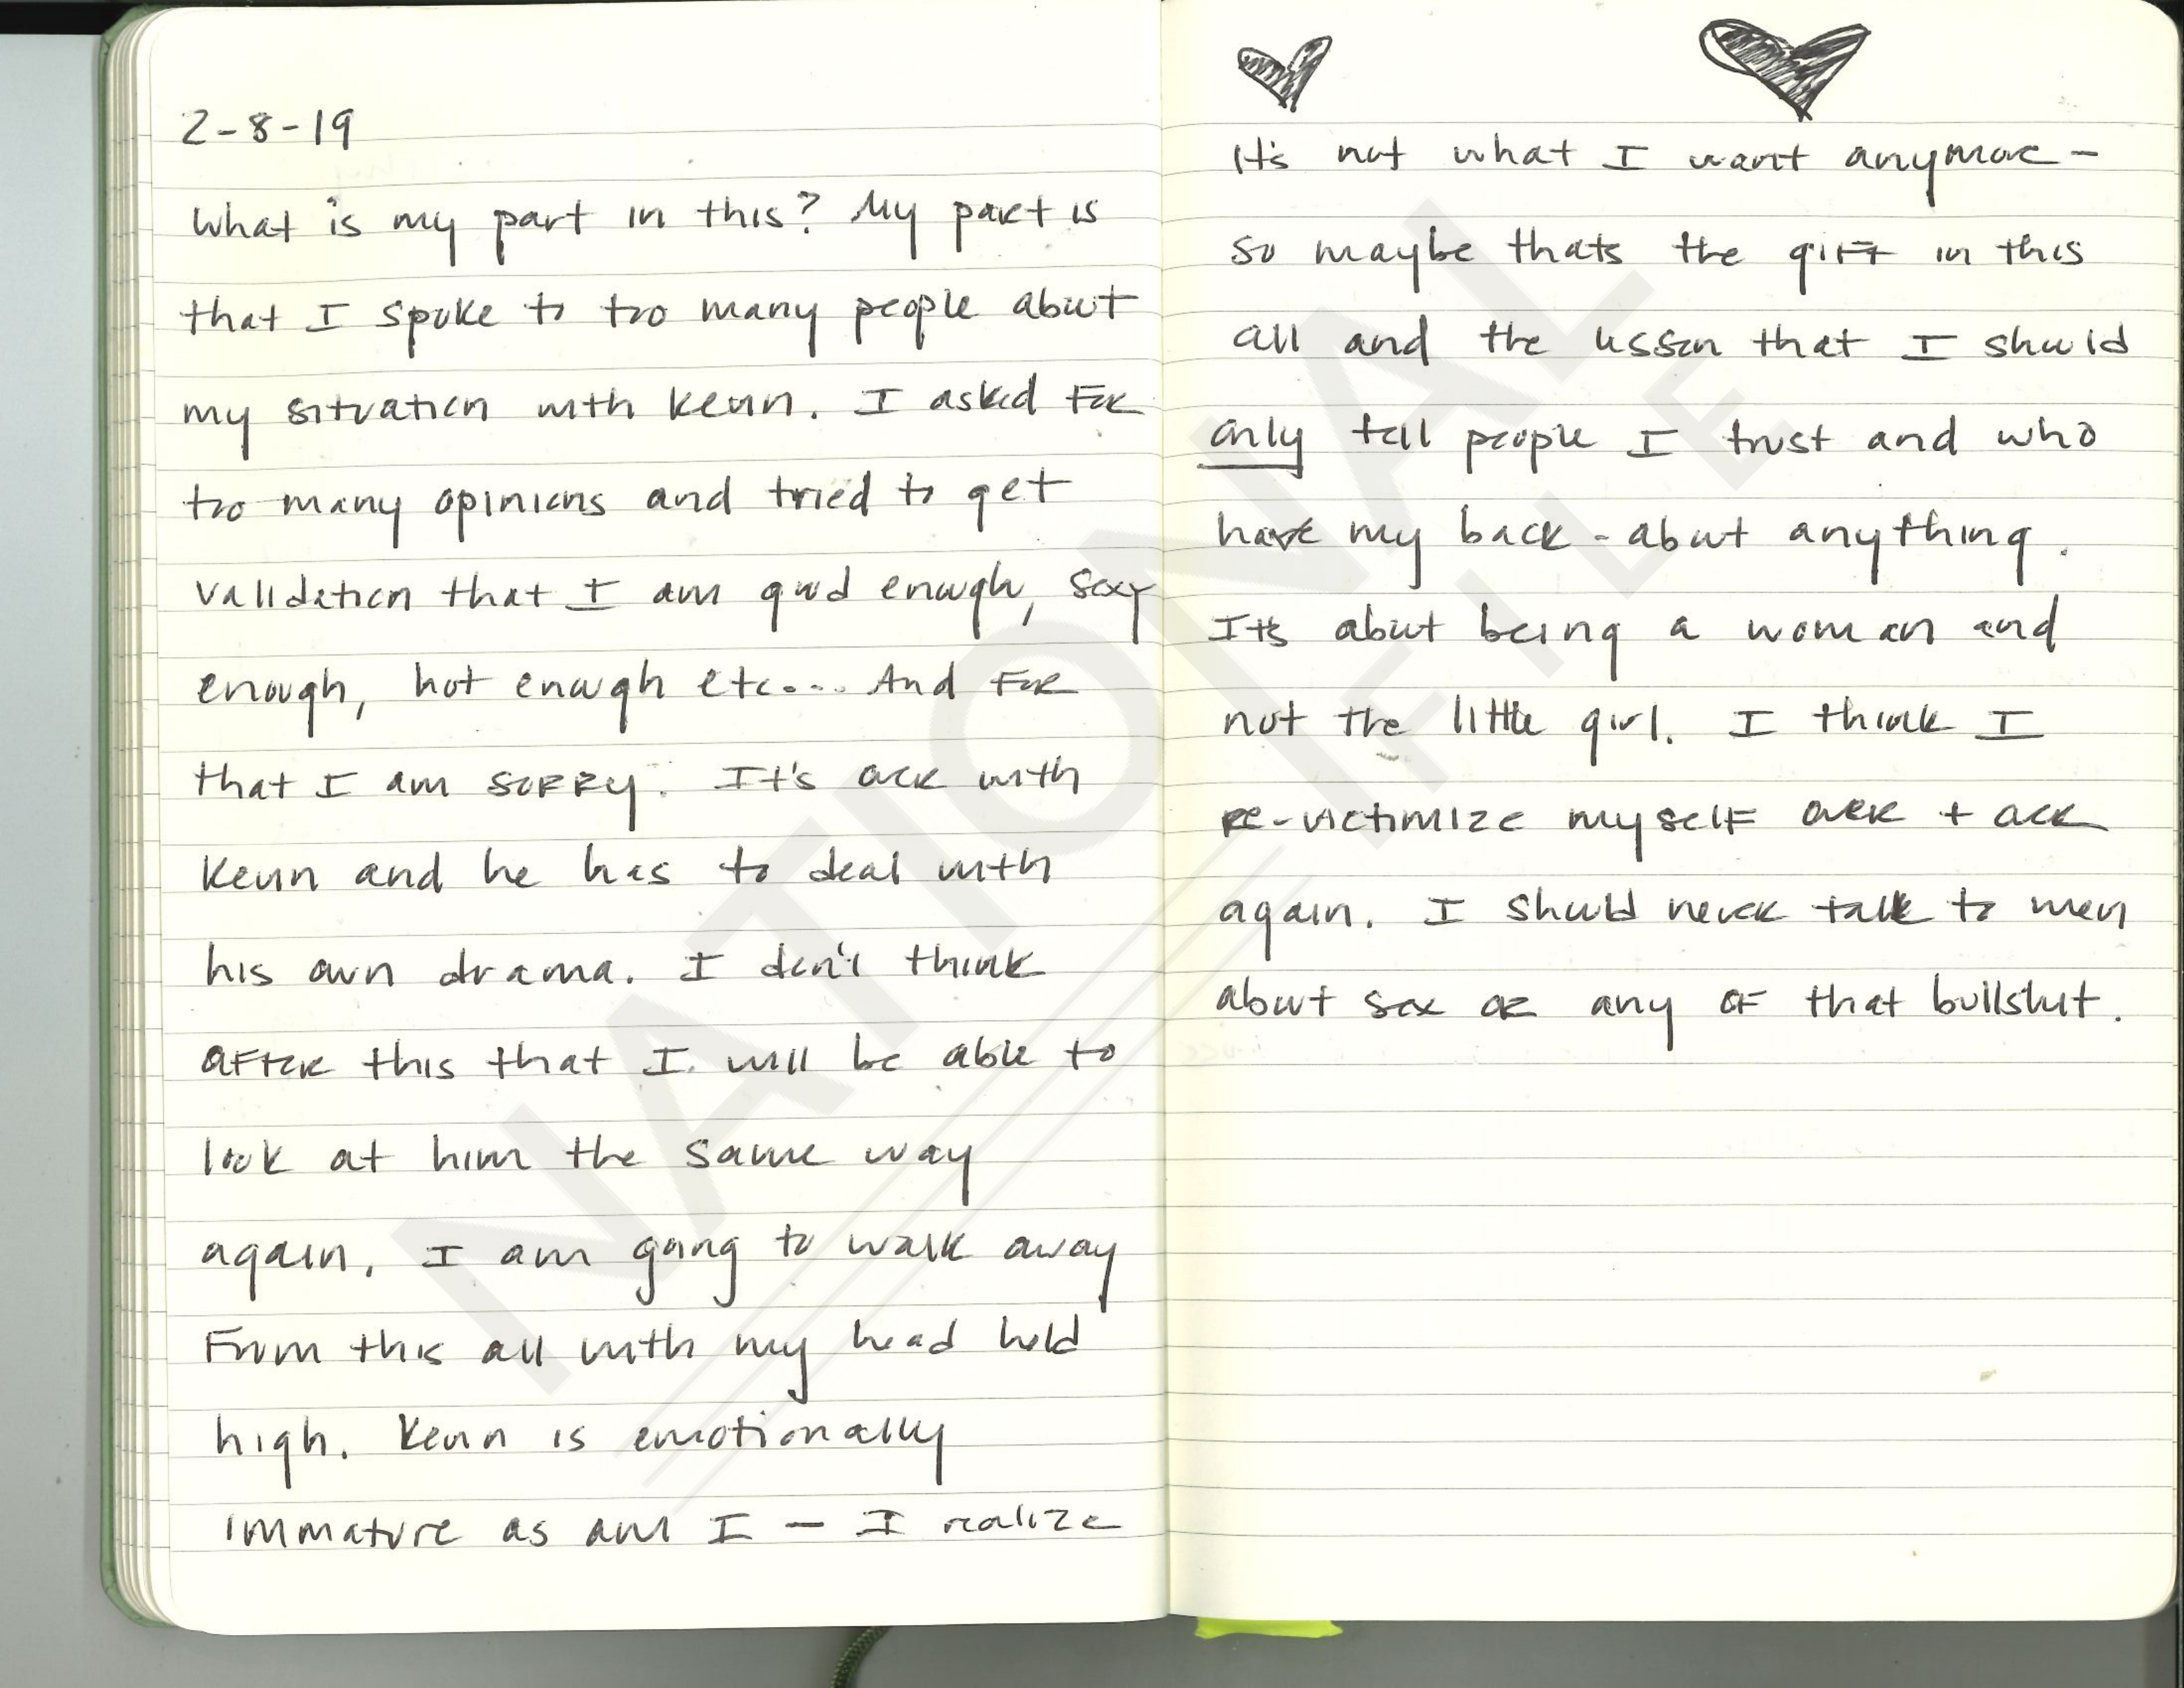 2-8-19
What is my part in this? My part is
that I spoke to too many people about
my situation with Kevin. I asked for
too many opinions and tried to get
validation that I am good enough, sexy
enough, hot enough etc.... And for
that I am sorry. It's over with
Kevin and he has to deal with
his own drama. I don't think
after this that I will be able to
look at him the same way
again. I am going to walk away
from this all with my head held
high. Kevin is emotionally
immature as am I — I realize
It's not what I want anymore -
so maybe thats the gift in this
all and the lesson that I should
only tell people I trust and who
have my back - about anything.
It's about being a woman and
not the little girl. I think I
re-victimize myself over + over
again. I should never talk to men
about sex or any of that bullshit.
NATIONAL
FILE